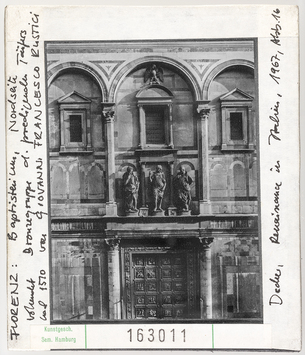 FLORENZ. Baptisterium, Nordseite
Bronzegruppe d. predigende Täufers
und 1510 von GIOVANNI FRANCESCO RUSTICI
Decker, Renaissance in Italien, 1967, Abb. 16
Kunstgesch.
Sem. Hamburg
163011